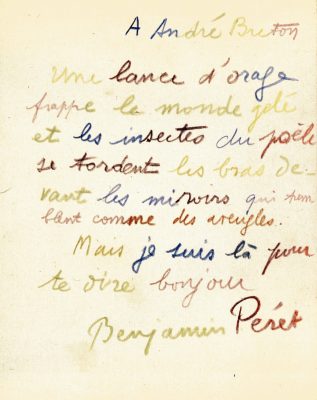 A André Breton
Une lance d'orage
frappe le monde gelé
et les insectes du poêle
se tordent les bras de-
vant les miroirs qui trem
blent comme des aveugles.
Mais je suis là pour
te dire bonjour
Benjamin Péret